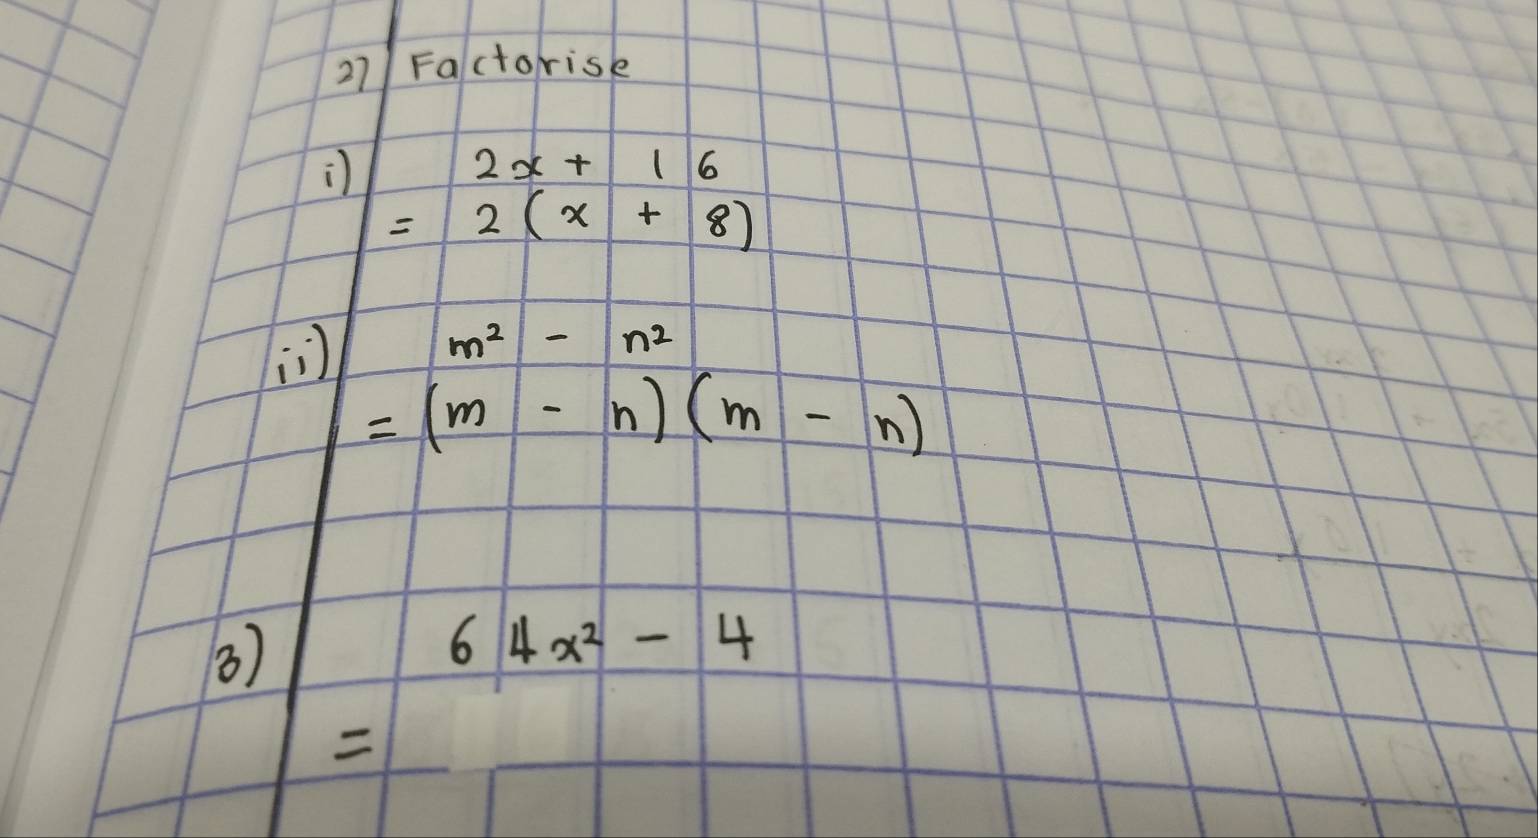 2) Factorise
i) 2x + 16
= 2(x + 8)
ii) m² - n²
= (m - n)(m - n)
3) 64x² - 4
=